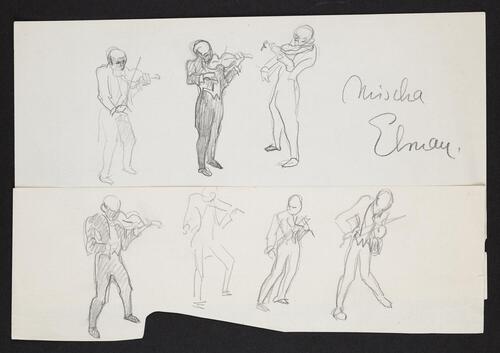 Mischa
Elman.